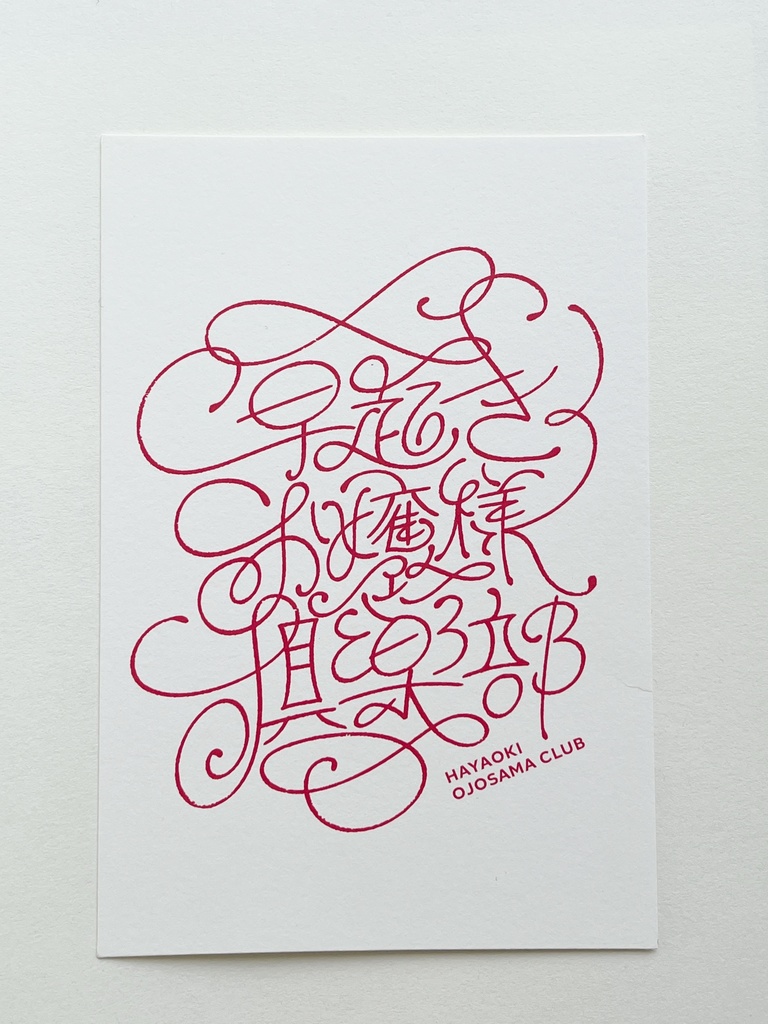 早起き
お嬢様
倶楽部
HAYAOKI
OJOSAMA CLUB